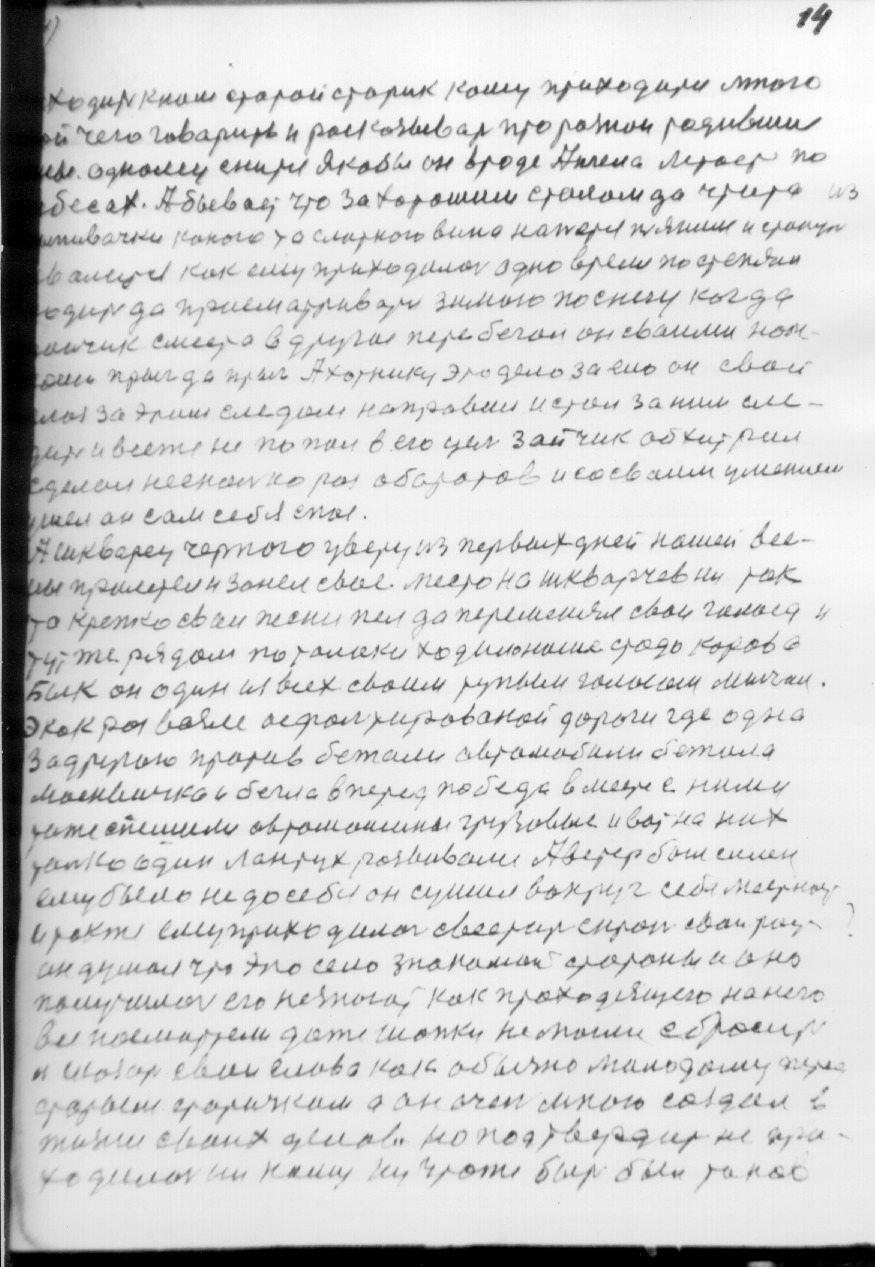 14
ходит к нам старой старик кому приходити много
ой чего говарить и росказыват про
одному снитя якобы он вроде Ангела летает по
бесах. А бывает что за хорошим столом да
какого то слаткого вина
как ему приходилос одно время по степям
да присматривати зимою поснегу когда
зайчик сместа в другое перебегал он своими нож-
прыг да прыг Ахотнику это дело заело он свой
за этим следом направил и стал заним сле-
дить и всеже не попал в его цел зайчик обхитрил
сделал несколко раз оборотов и сосвоим умением
ушел он сам себя спас.
А шкварец черного цвету из первых дней нашей вес-
ны прилетел и занел свое место на шкварчевни так
то крепко сваи песни пел да переменял свои галоса и
тут же рядом потолоки ходило наше стадо коров а
Бык он один из всех своим тупым голосом мычал.
Э как раз возле асфалтированой дороги где одна
за другою против бежали автомобили бежала
москвичка и бегла вперед победа вместе с ними
тоже спешили автомашины грузовые и вот на них
толко один лантух розвивали А ветер был силен
ему было недосебя он сушил вокруг себя
и также ему приходилос
он думал что это село знакомай стораны а оно
получилос его незногат как проходящего на него
все посмотрели даже шапки немогли сбросит
и сказат свои слова как обычно молодому перед
старым старичком а он очен много создал в
жизни своих делов. но подтвердит не при-
ходилос ни кому ну что же быт был таков